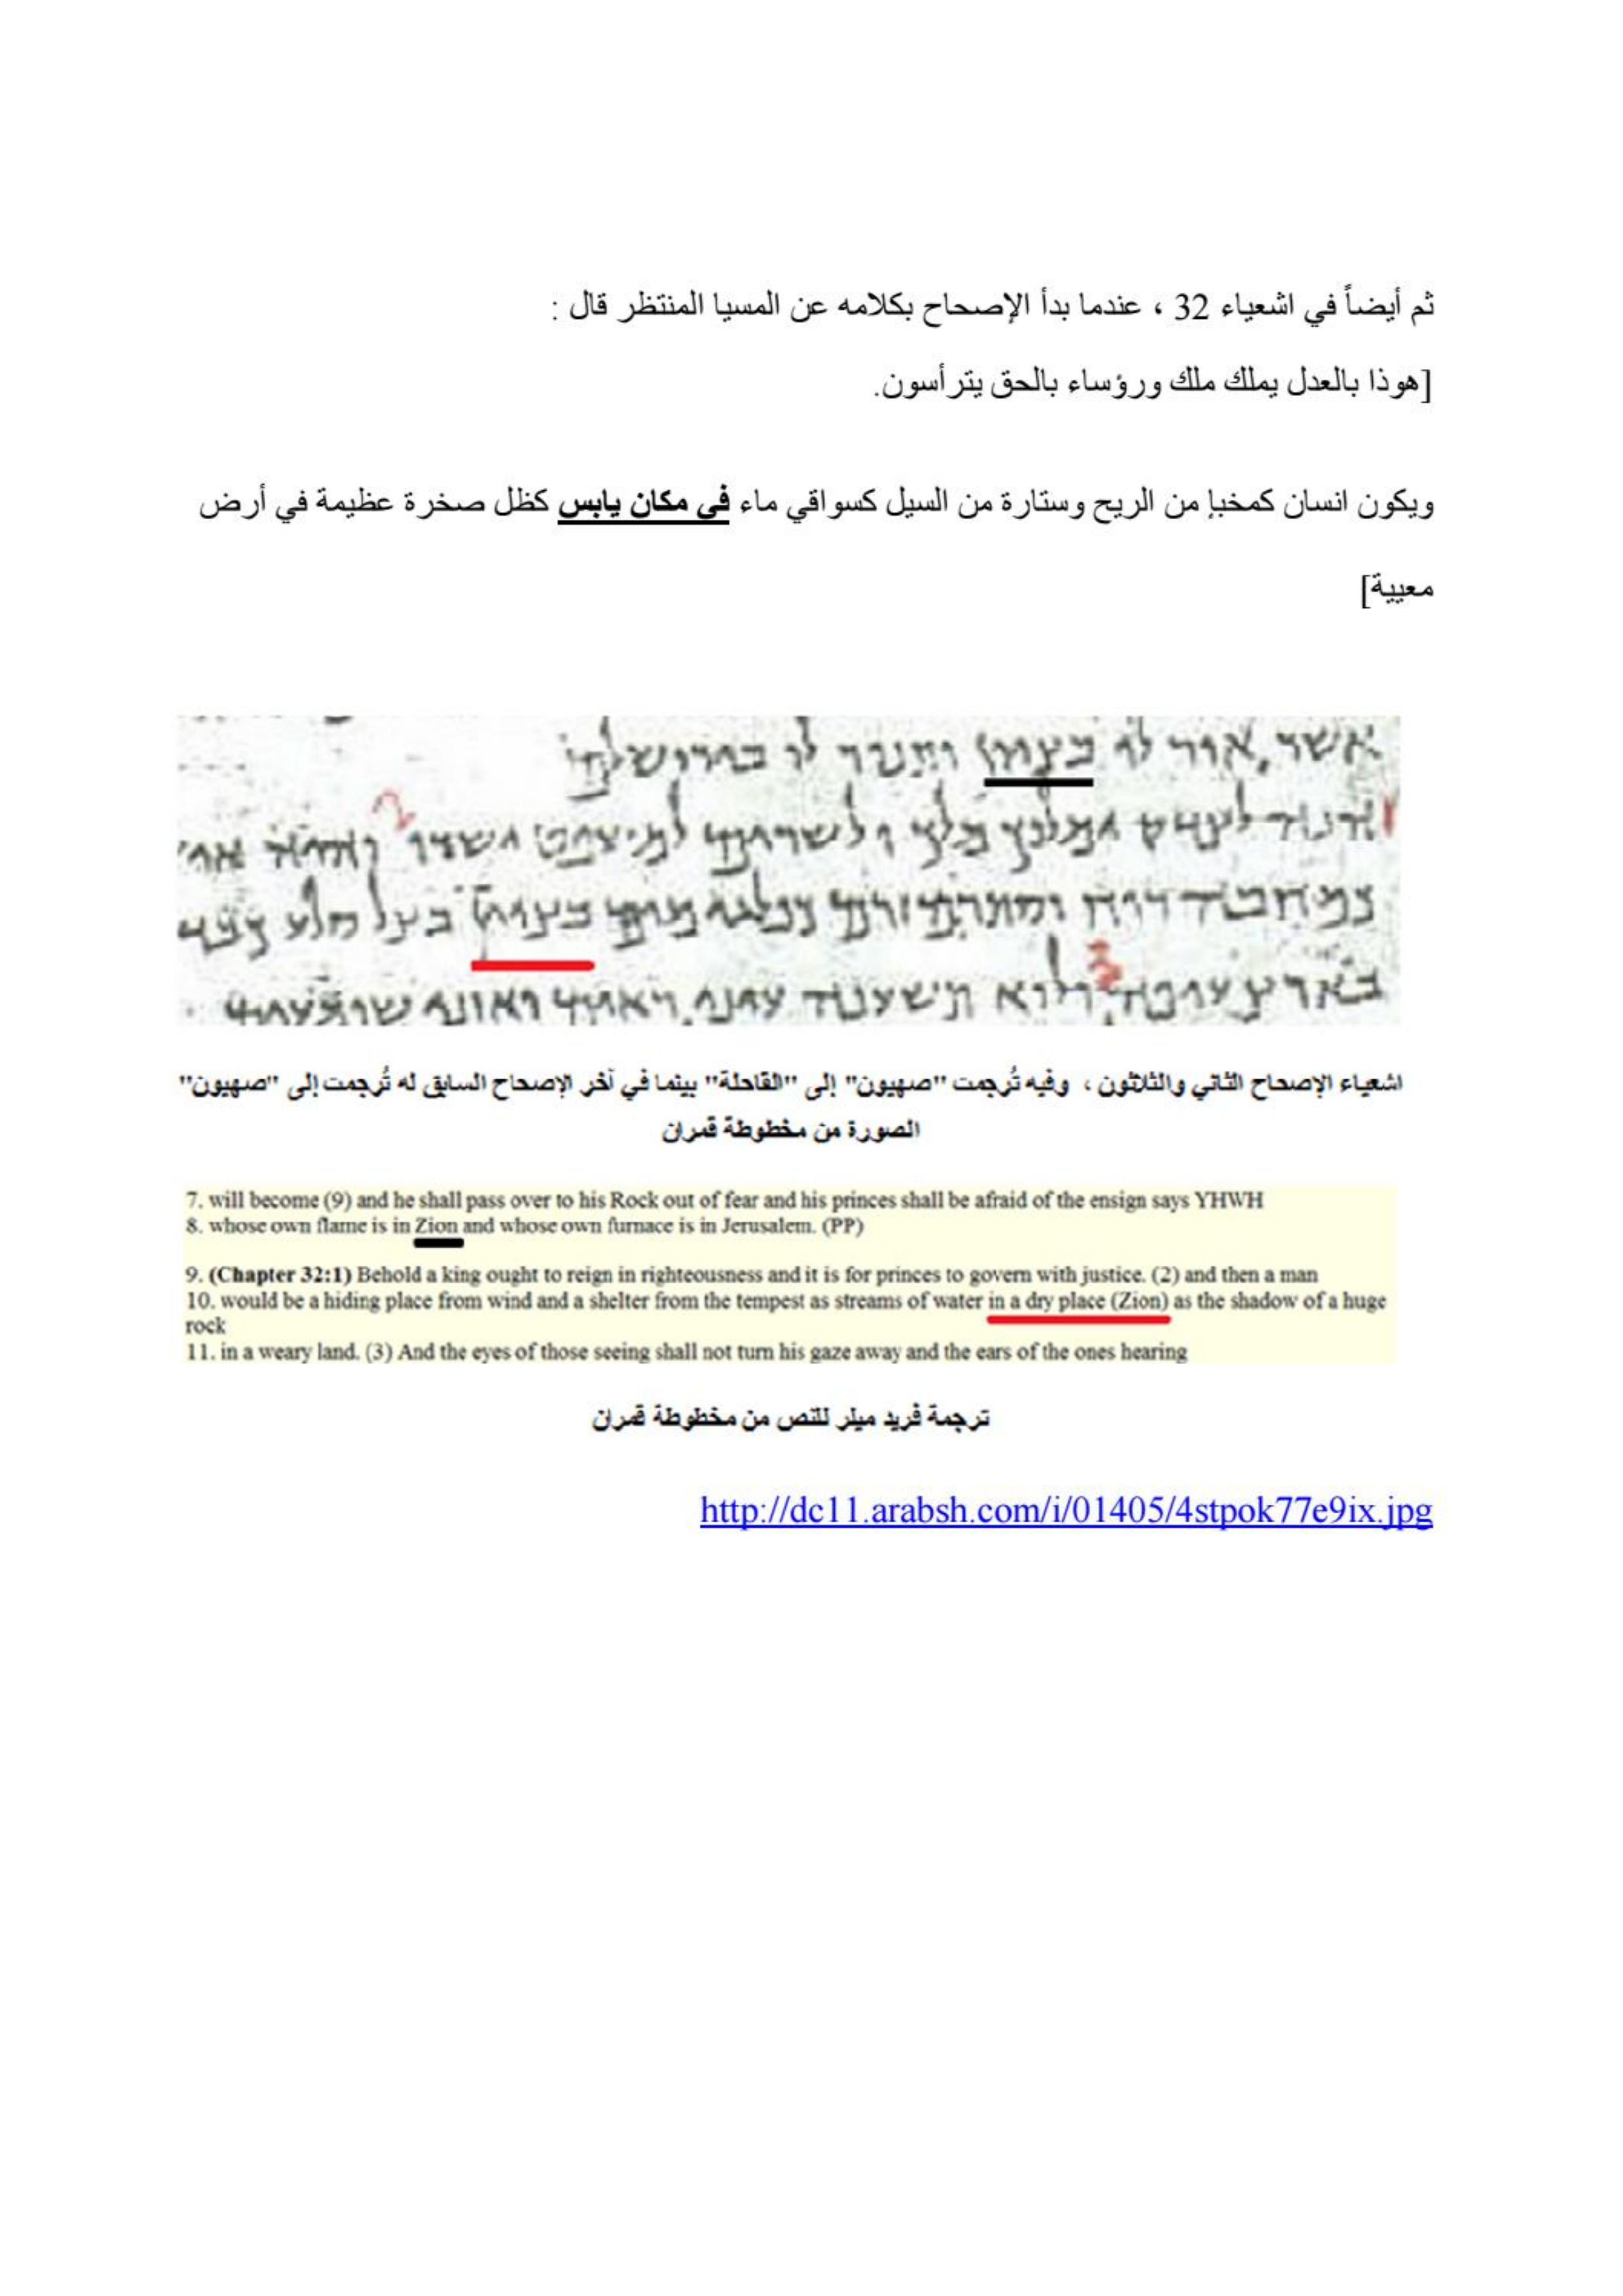 ثم أيضاً في اشعياء 32 ، عندما بدأ الإصحاح بكلامه عن المسيا المنتظر قال :
[هوذا بالعدل يملك ملك ورؤساء بالحق يترأسون.
ويكون انسان كمخبإ من الريح وستارة من السيل كسواقي ماء في مكان يابس كظل صخرة عظيمة في أرض
معيية]
אשר אור לו בציון ותנור לו בירושלם
2
1
3
اشعياء الإصحاح الثاني والثلاثون ، وفيه تُرجمت "صهيون" إلى "القاحلة" بينما في آخر الإصحاح السابق له تُرجمت إلى "صهيون"
الصورة من مخطوطة قمران
7. will become (9) and he shall pass over to his Rock out of fear and his princes shall be afraid of the ensign says YHWH
8. whose own flame is in Zion and whose own furnace is in Jerusalem. (PP)
9. (Chapter 32:1) Behold a king ought to reign in righteousness and it is for princes to govern with justice. (2) and then a man
10. would be a hiding place from wind and a shelter from the tempest as streams of water in a dry place (Zion) as the shadow of a huge
rock
11. in a weary land. (3) And the eyes of those seeing shall not turn his gaze away and the ears of the ones hearing
ترجمة فريد ميلر للنص من مخطوطة قمران
http://dc11.arabsh.com/i/01405/4stpok77e9ix.jpg